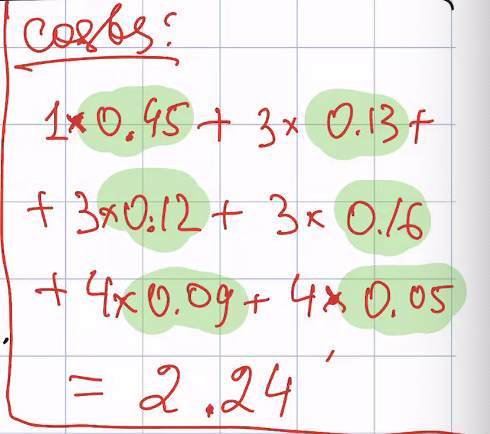 costs:
1×0.45 + 3× 0.13 +
+ 3×0.12 + 3× 0.16
+ 4×0.09 + 4× 0.05
= 2.24